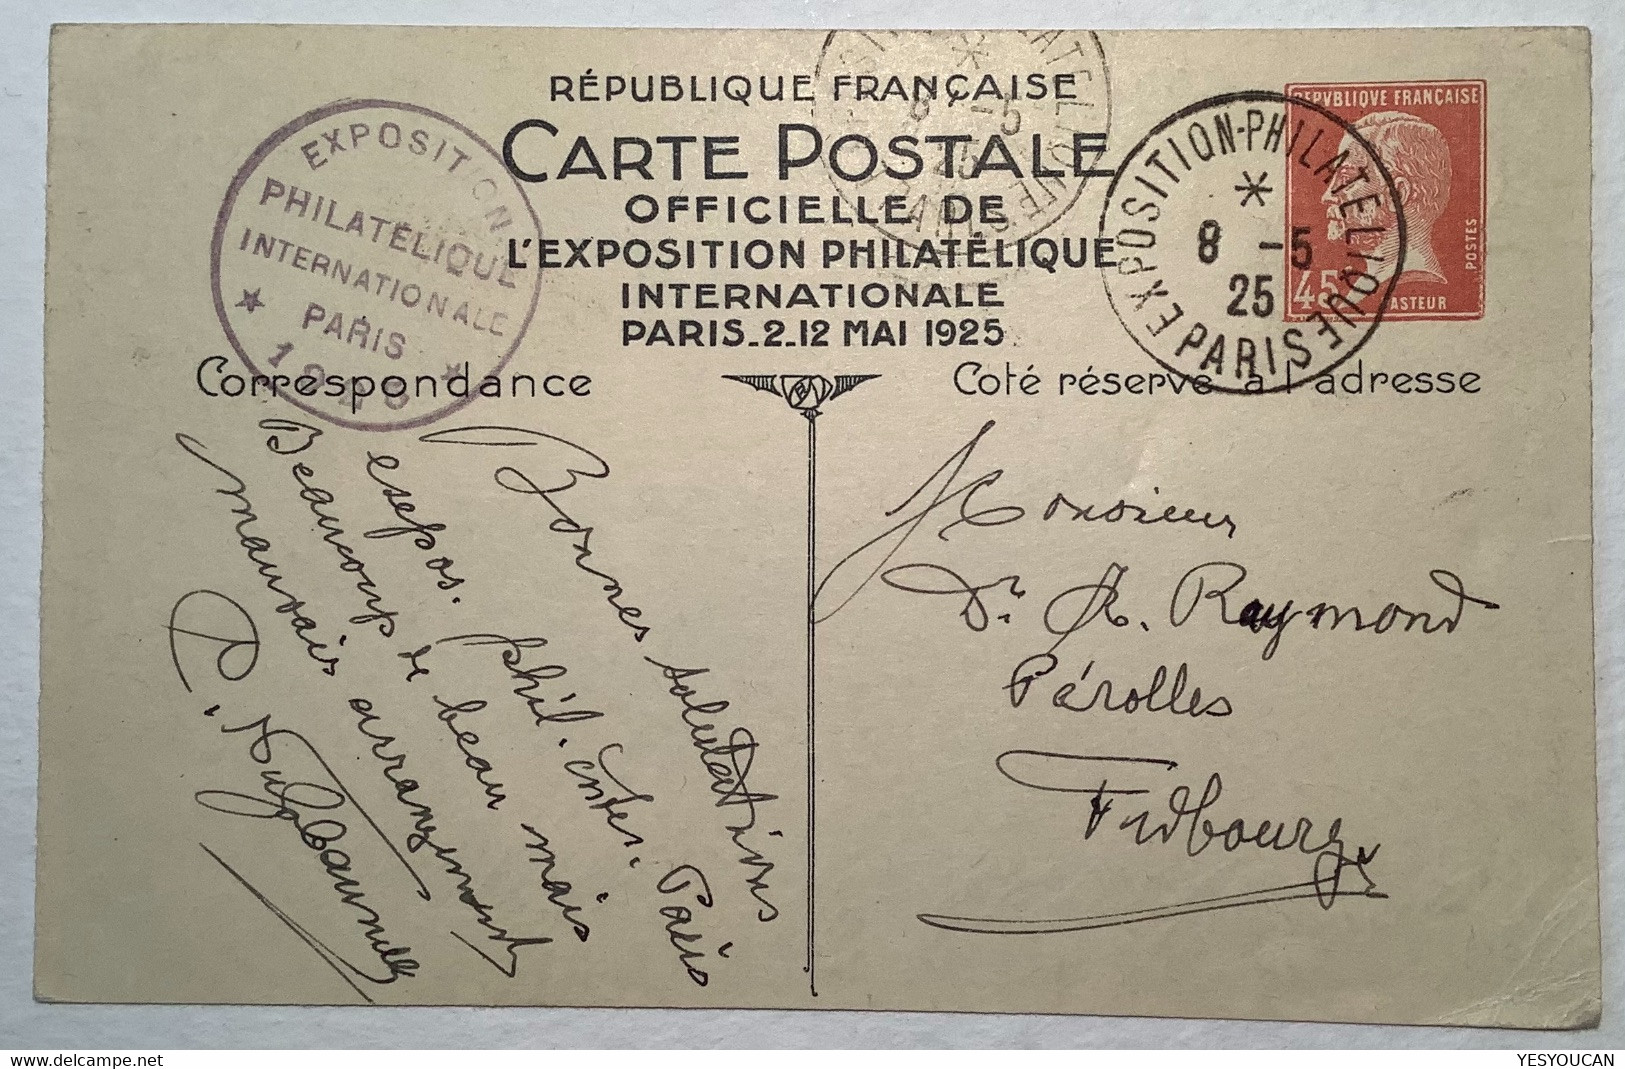 RÉPUBLIQUE FRANÇAISE
CARTE POSTALE
OFFICIELLE DE
L'EXPOSITION PHILATÉLIQUE
INTERNATIONALE
PARIS_2_12 MAI 1925
EXPOSITION
PHILATÉLIQUE
INTERNATIONALE
PARIS
EXPOSITION-PHILATÉLIQUE
8 -5
25
PARIS
8 -5
25
REPVBLIQVE FRANÇAISE
POSTES
45
PASTEUR
Correspondance
Coté réservé à l'adresse
Bonnes salutations
phil. inter. Paris
Beaucoup de beau mais
mauvais arrangement
Monsieur
Dr. A. Raymond
Pérolles
Fribourg
YESYOUCAN